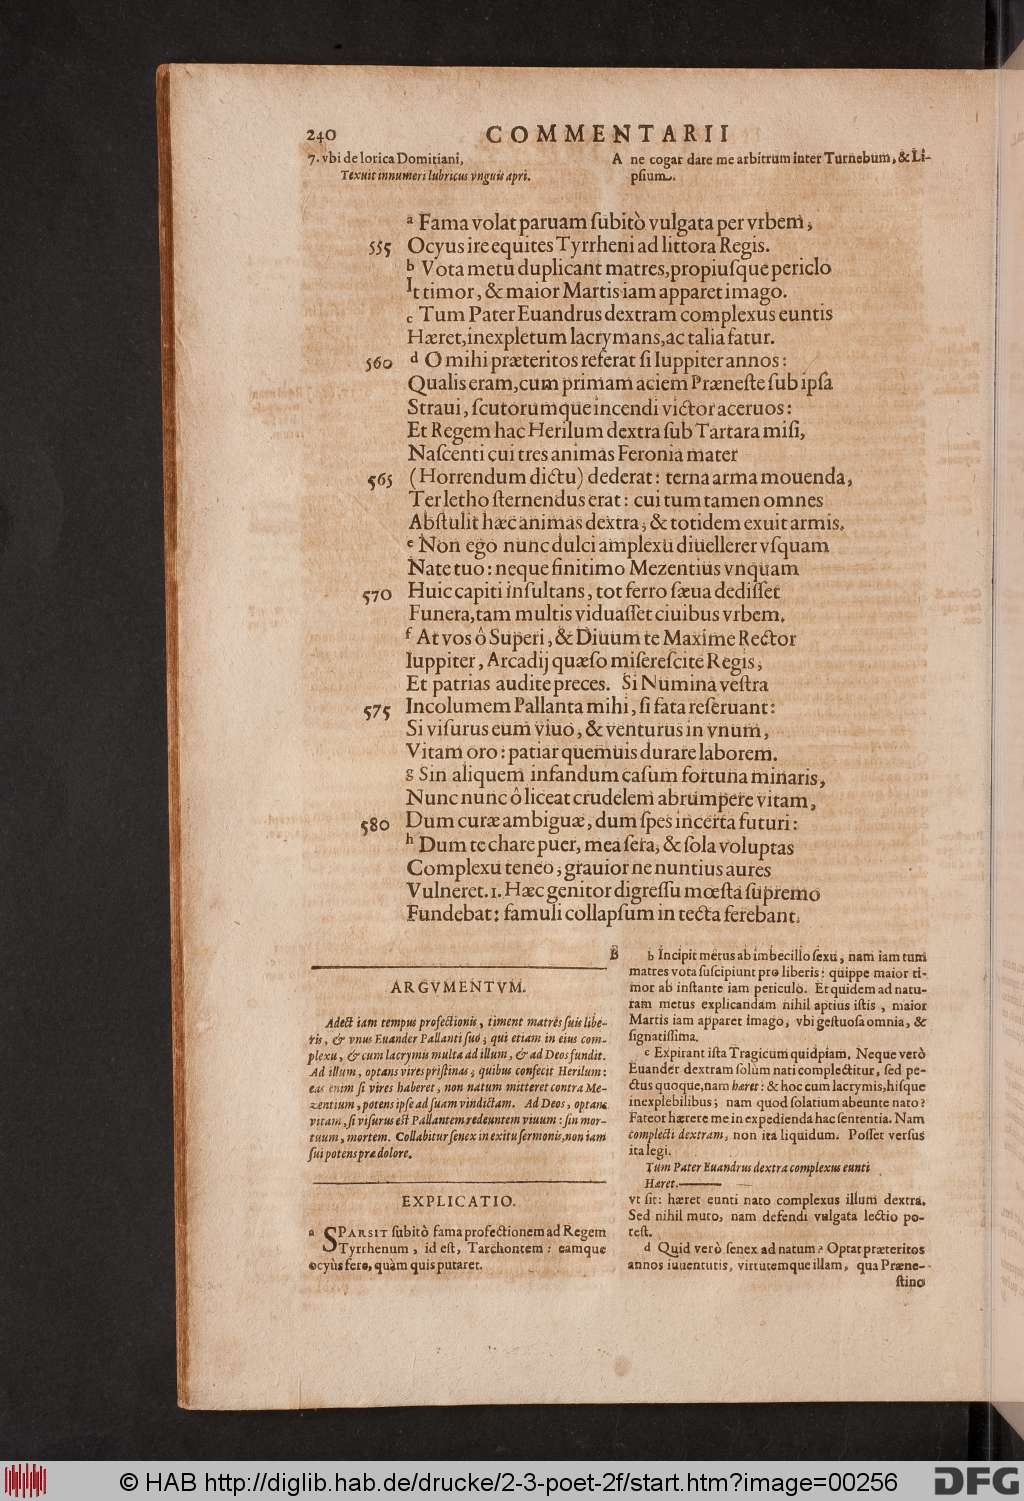 240
COMMENTARII
7. vbi de lorica Domitiani,
Texuit innumeri lubricus vnguis apri.
A ne cogar dare me arbitrum inter Turnebum, & Li-
psium.
a Fama volat paruam ſubitò vulgata per vrbem,
555 Ocyus ire equites Tyrrheni ad littora Regis.
b Vota metu duplicant matres, propiuſque periclo
It timor, & maior Martis iam apparet imago.
c Tum Pater Euandrus dextram complexus euntis
Hæret, inexpletum lacrymans, ac talia fatur.
560 d O mihi præteritos referat ſi Iuppiter annos:
Qualis eram, cum primam aciem Præneſte ſub ipſa
Straui, ſcutorumque incendi victor aceruos:
Et Regem hac Herilum dextra ſub Tartara miſi,
Naſcenti cui tres animas Feronia mater
565 (Horrendum dictu) dederat: terna arma mouenda,
Ter letho ſternendus erat: cui tum tamen omnes
Abſtulit hæc animas dextra, & totidem exuit armis.
e Non ego nunc dulci amplexu diuellerer vſquam
Nate tuo: neque finitimo Mezentius vnquam
570 Huic capiti inſultans, tot ferro ſæua dediſſet
Funera, tam multis viduaſſet ciuibus vrbem.
f At vos ô Superi, & Diuum te Maxime Rector
Iuppiter, Arcadij quæſo miſereſcite Regis,
Et patrias audite preces. Si Numina veſtra
575 Incolumem Pallanta mihi, ſi fata reſeruant:
Si viſurus eum viuo, & venturus in vnum,
Vitam oro: patiar quemuis durare laborem.
g Sin aliquem infandum caſum fortuna minaris,
Nunc nunc ô liceat crudelem abrumpere vitam,
580 Dum curæ ambiguæ, dum ſpes incerta futuri:
h Dum te chare puer, mea ſera, & ſola voluptas
Complexu teneo, grauior ne nuntius aures
Vulneret. 1. Hæc genitor digreſſu mœſta ſupremo
Fundebat: famuli collapſum in tecta ferebant.
ARGVMENTVM.
Adeſt iam tempus profectionis, timent matres ſuis libe-
ris, & vnus Euander Pallanti ſuo; qui etiam in eius com-
plexu, & cum lacrymis multa ad illum, & ad Deos fundit.
Ad illum, optans vires priſtinas, quibus confecit Herilum:
eas enim ſi vires haberet, non natum mitteret contra Me-
zentium, potens ipſe ad ſuam vindictam. Ad Deos, optans
vitam, ſi viſurus eſt Pallantem redeuntem viuum: ſin mor-
tuum, mortem. Collabitur ſenex in exitu ſermonis, non iam
ſui potens præ dolore.
EXPLICATIO.
a SPARSIT ſubitò fama profectionem ad Regem
Tyrrhenum, id eſt, Tarchontem: eamque
ocyùs fere, quàm quis putaret.
B b Incipit metus ab imbecillo ſexu, nam iam tum
matres vota ſuſcipiunt pro liberis: quippe maior ti-
mor ab inſtante iam periculo. Et quidem ad natu-
ram metus explicandam nihil aptius iſtis, maior
Martis iam apparet imago, vbi geſtuoſa omnia, &
ſignatiſſima.
c Expirant iſta Tragicum quidpiam. Neque verò
Euander dextram ſolùm nati complectitur, ſed pe-
ctus quoque, nam hæret: & hoc cum lacrymis, hiſque
inexplebilibus; nam quod ſolatium abeunte nato?
Fateor hærere me in expedienda hac ſententia. Nam
complecti dextram, non ita liquidum. Poſſet verſus
ita legi.
Tum Pater Euandrus dextra complexus eunti
Hæret.
vt ſit: hæret eunti nato complexus illum dextra.
Sed nihil muto, nam defendi vulgata lectio po-
teſt.
d Quid verò ſenex ad natum? Optat præteritos
annos iuuentutis, virtutemque illam, qua Præne-
ſtino
© HAB http://diglib.hab.de/drucke/2-3-poet-2f/start.htm?image=00256
DFG